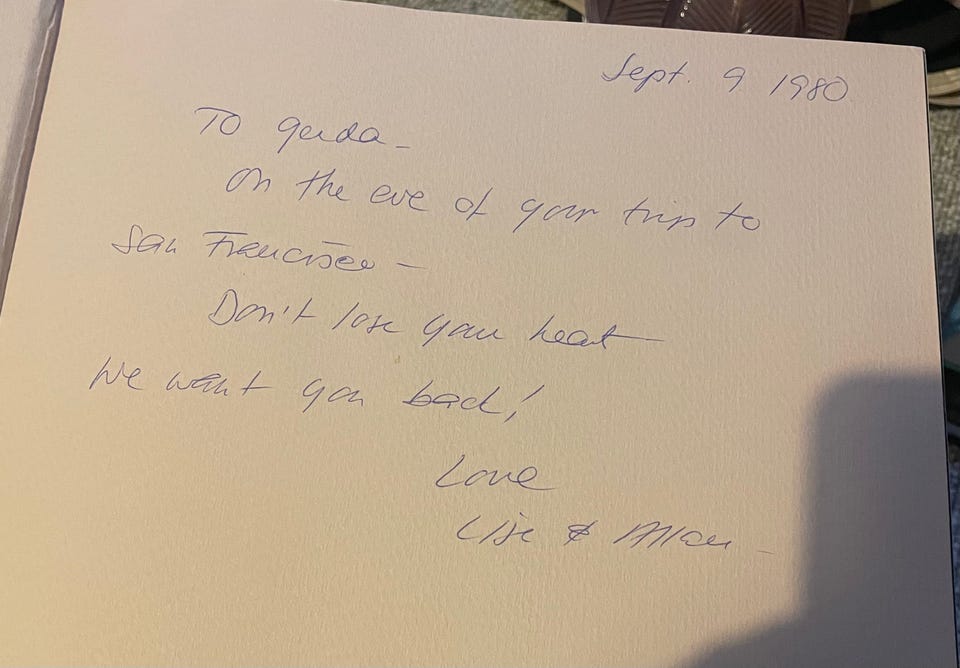 Sept. 9 1980
To Gerda -
on the eve of your trip to
San Francisco -
Don't lose your heart -
We want you back!
Love
Lise & Allan -